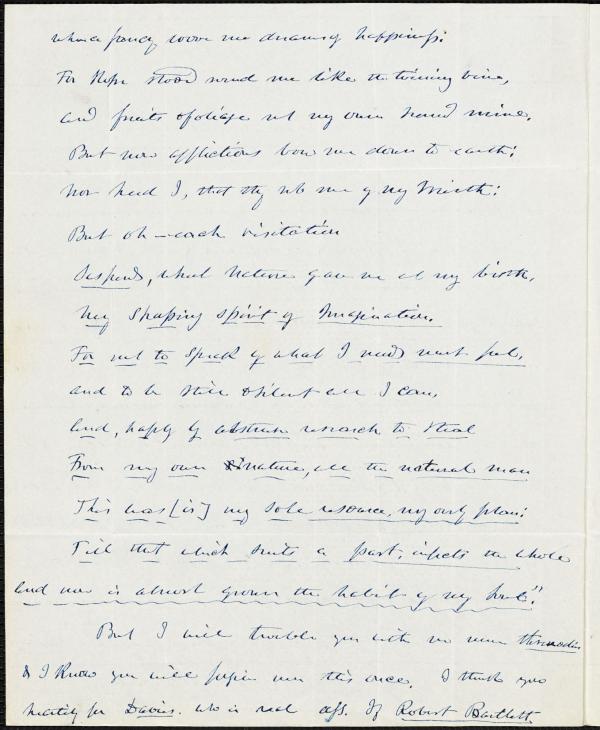 whence fancy wove me dreams of happiness:
For Hope stood round me like the twining vine,
and fruits & foliage not my own seemed mine.
But now afflictions bow me down to earth:
Nor heed I, that they rob me of my Mirth:
But oh — each visitation
Suspends, what Nature gave me at my birth,
My Shaping spirit of Imagination.
For not to Speak of what I needs must feel,
and to be still & silent all I can,
And, haply by abstruse research to steal
From my own nature, all the natural man
This was [is] my sole resource, my only plan:
Till that which suits a part, infects the whole
And now is almost grown the habit of my Soul."
But I will trouble you with no more threnodies
& I know you will forgive me this once. I thank you
heartily for Davies. who is real
Robert Bartlett